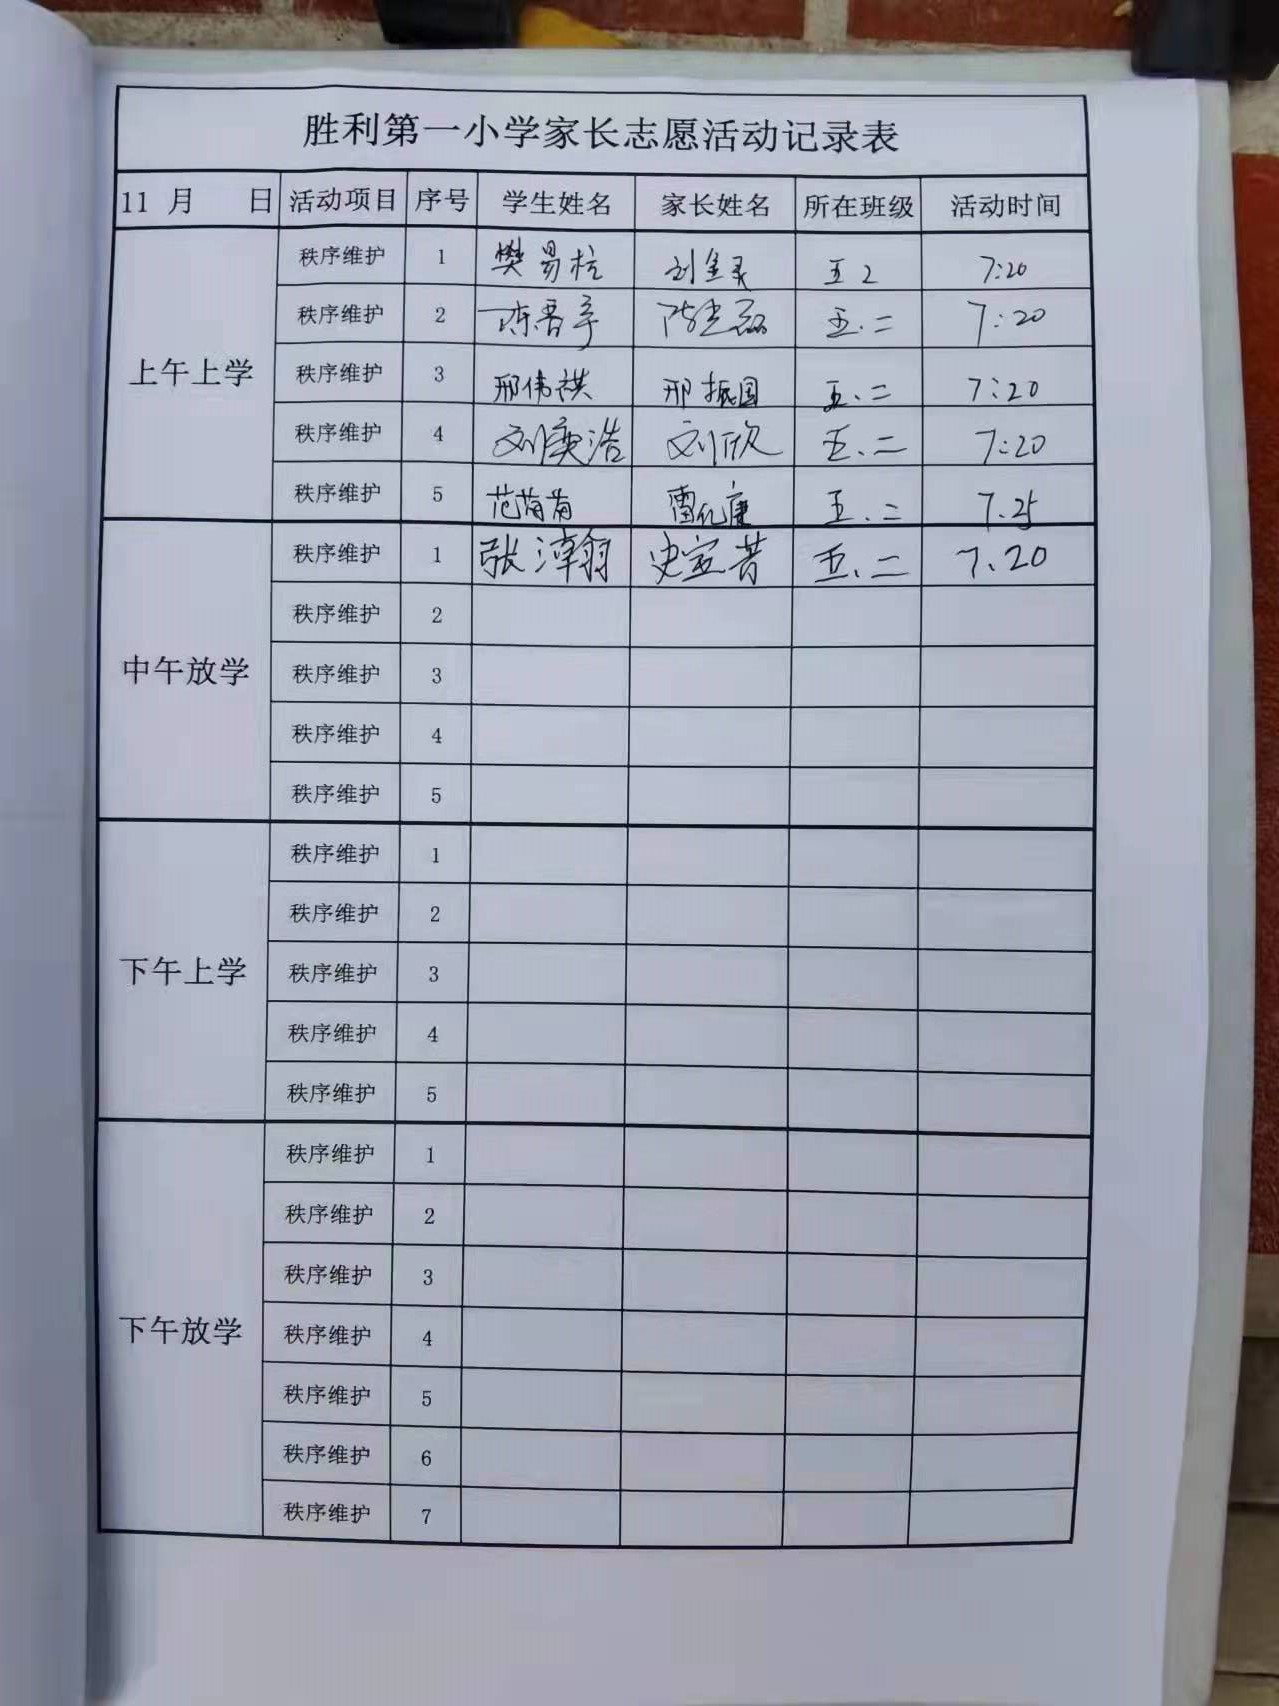 胜利第一小学家长志愿活动记录表
11 月 日 活动项目 序号 学生姓名 家长姓名 所在班级 活动时间
上午上学
秩序维护 1 樊易杭 五2 7:20
秩序维护 2 五.二 7:20
秩序维护 3 邢伟祺 邢振国 五、二 7:20
秩序维护 4 刘奕浩 刘欣 五、二 7:20
秩序维护 5 五.二 7.25
中午放学
秩序维护 1 五、二 7.20
秩序维护 2
秩序维护 3
秩序维护 4
秩序维护 5
下午上学
秩序维护 1
秩序维护 2
秩序维护 3
秩序维护 4
秩序维护 5
下午放学
秩序维护 1
秩序维护 2
秩序维护 3
秩序维护 4
秩序维护 5
秩序维护 6
秩序维护 7